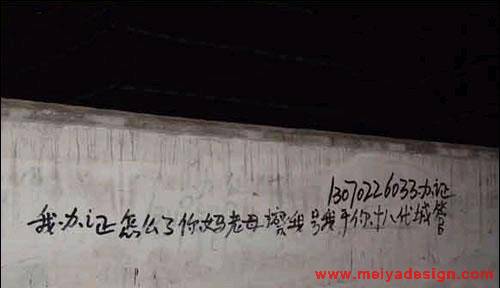 13070226033办证
我办证怎么了你妈老母擦我号我干你十八代城管
www.meiyadesign.com